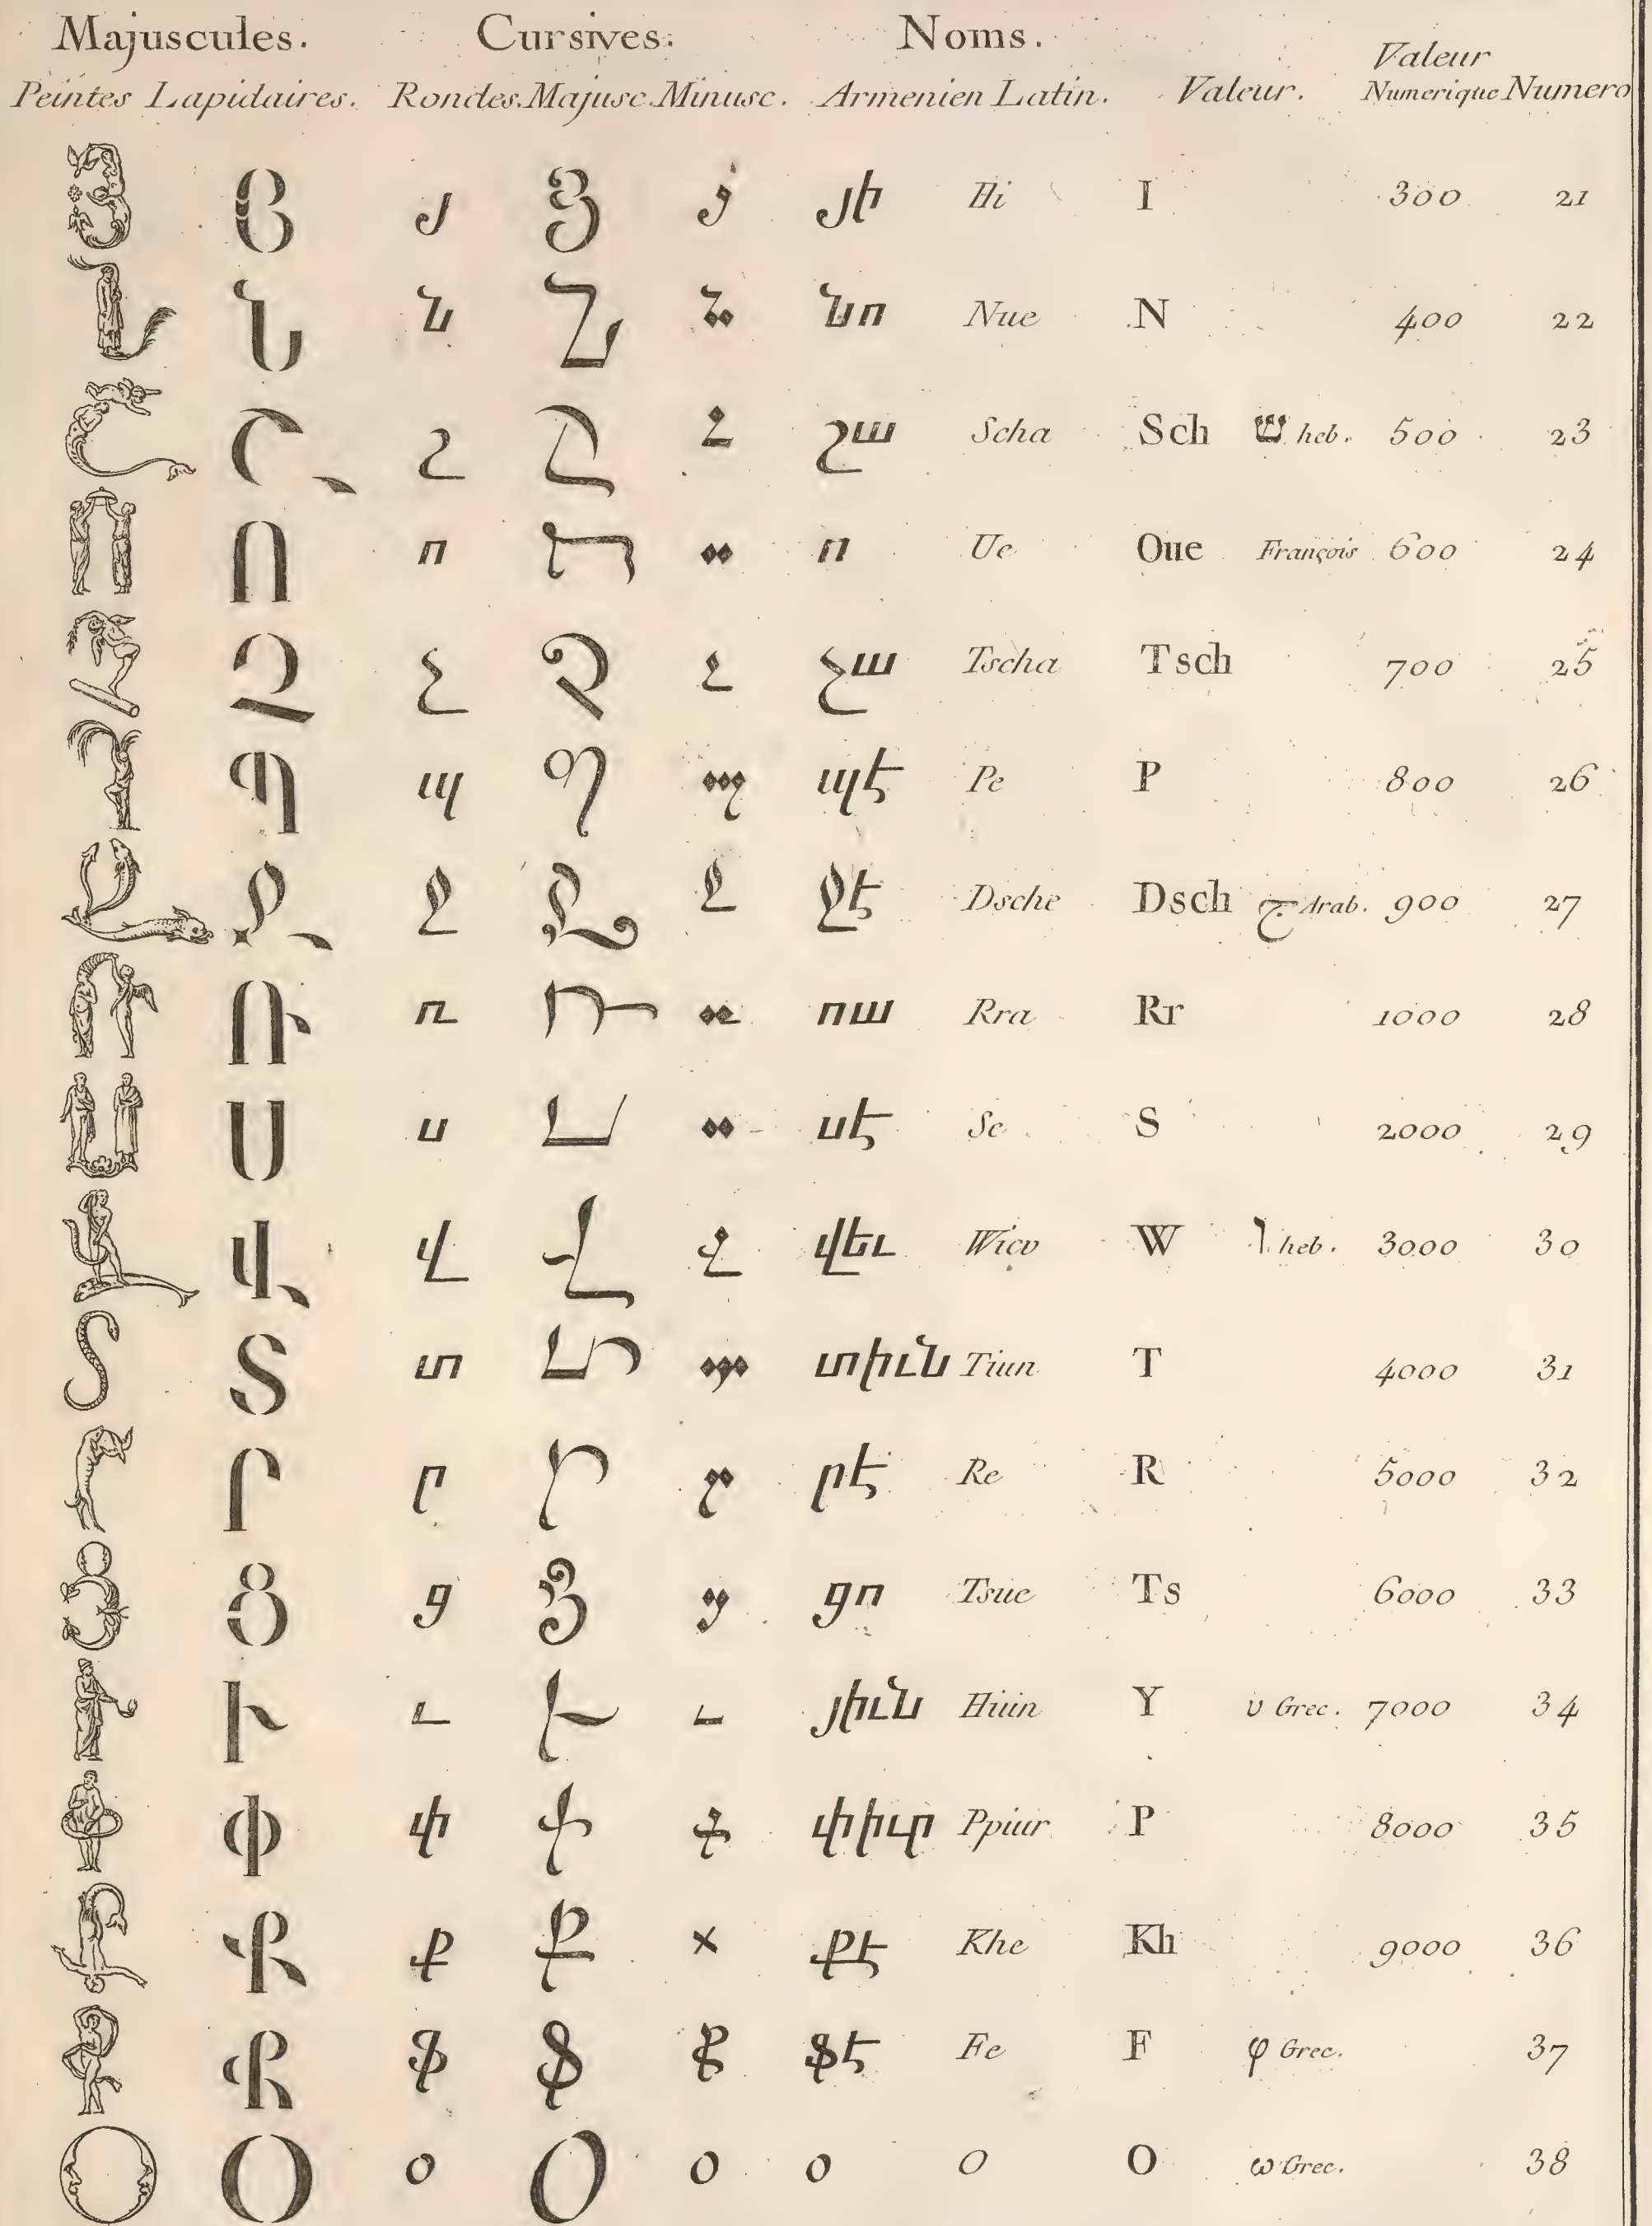 Majuscules. Cursives. Noms. Valeur
Peintes Lapidaires. Rondes. Majusc. Minusc. Armenien Latin. Valeur. Numerique Numero
Յ յ Յ յ յի Hi I 300 21
Ն Ն ն Ն ն նո Nue N 400 22
Շ Շ շ Շ շ շա Scha Sch ש heb. 500 23
Ո Ո ո Ո ո ո Ue Oue François 600 24
Չ Չ չ Չ չ չա Tscha Tsch 700 25
Պ Պ պ Պ պ պէ Pe P 800 26
Ջ Ջ ջ Ջ ջ ջէ Dsche Dsch ج Arab. 900 27
Ռ Ռ ռ Ռ ռ ռա Rra Rr 1000 28
Ս Ս ս Ս ս սէ Se S 2000 29
Վ Վ վ Վ վ վեւ Wiev W ו heb. 3000 30
Տ Տ տ Տ տ տիւն Tiun T 4000 31
Ր Ր ր Ր ր րէ Re R 5000 32
Ց Ց ց Ց ց ցո Tsue Ts 6000 33
Ւ Ւ ւ Ւ ւ յիւն Hiun Y υ Grec. 7000 34
Փ Փ փ Փ փ փիւր Ppiur P 8000 35
Ք Ք ք Ք ք քէ Khe Kh 9000 36
Ֆ Ֆ ֆ Ֆ ֆ ֆէ Fe F φ Grec. 37
Օ Օ օ Օ օ օ O O ω Grec. 38